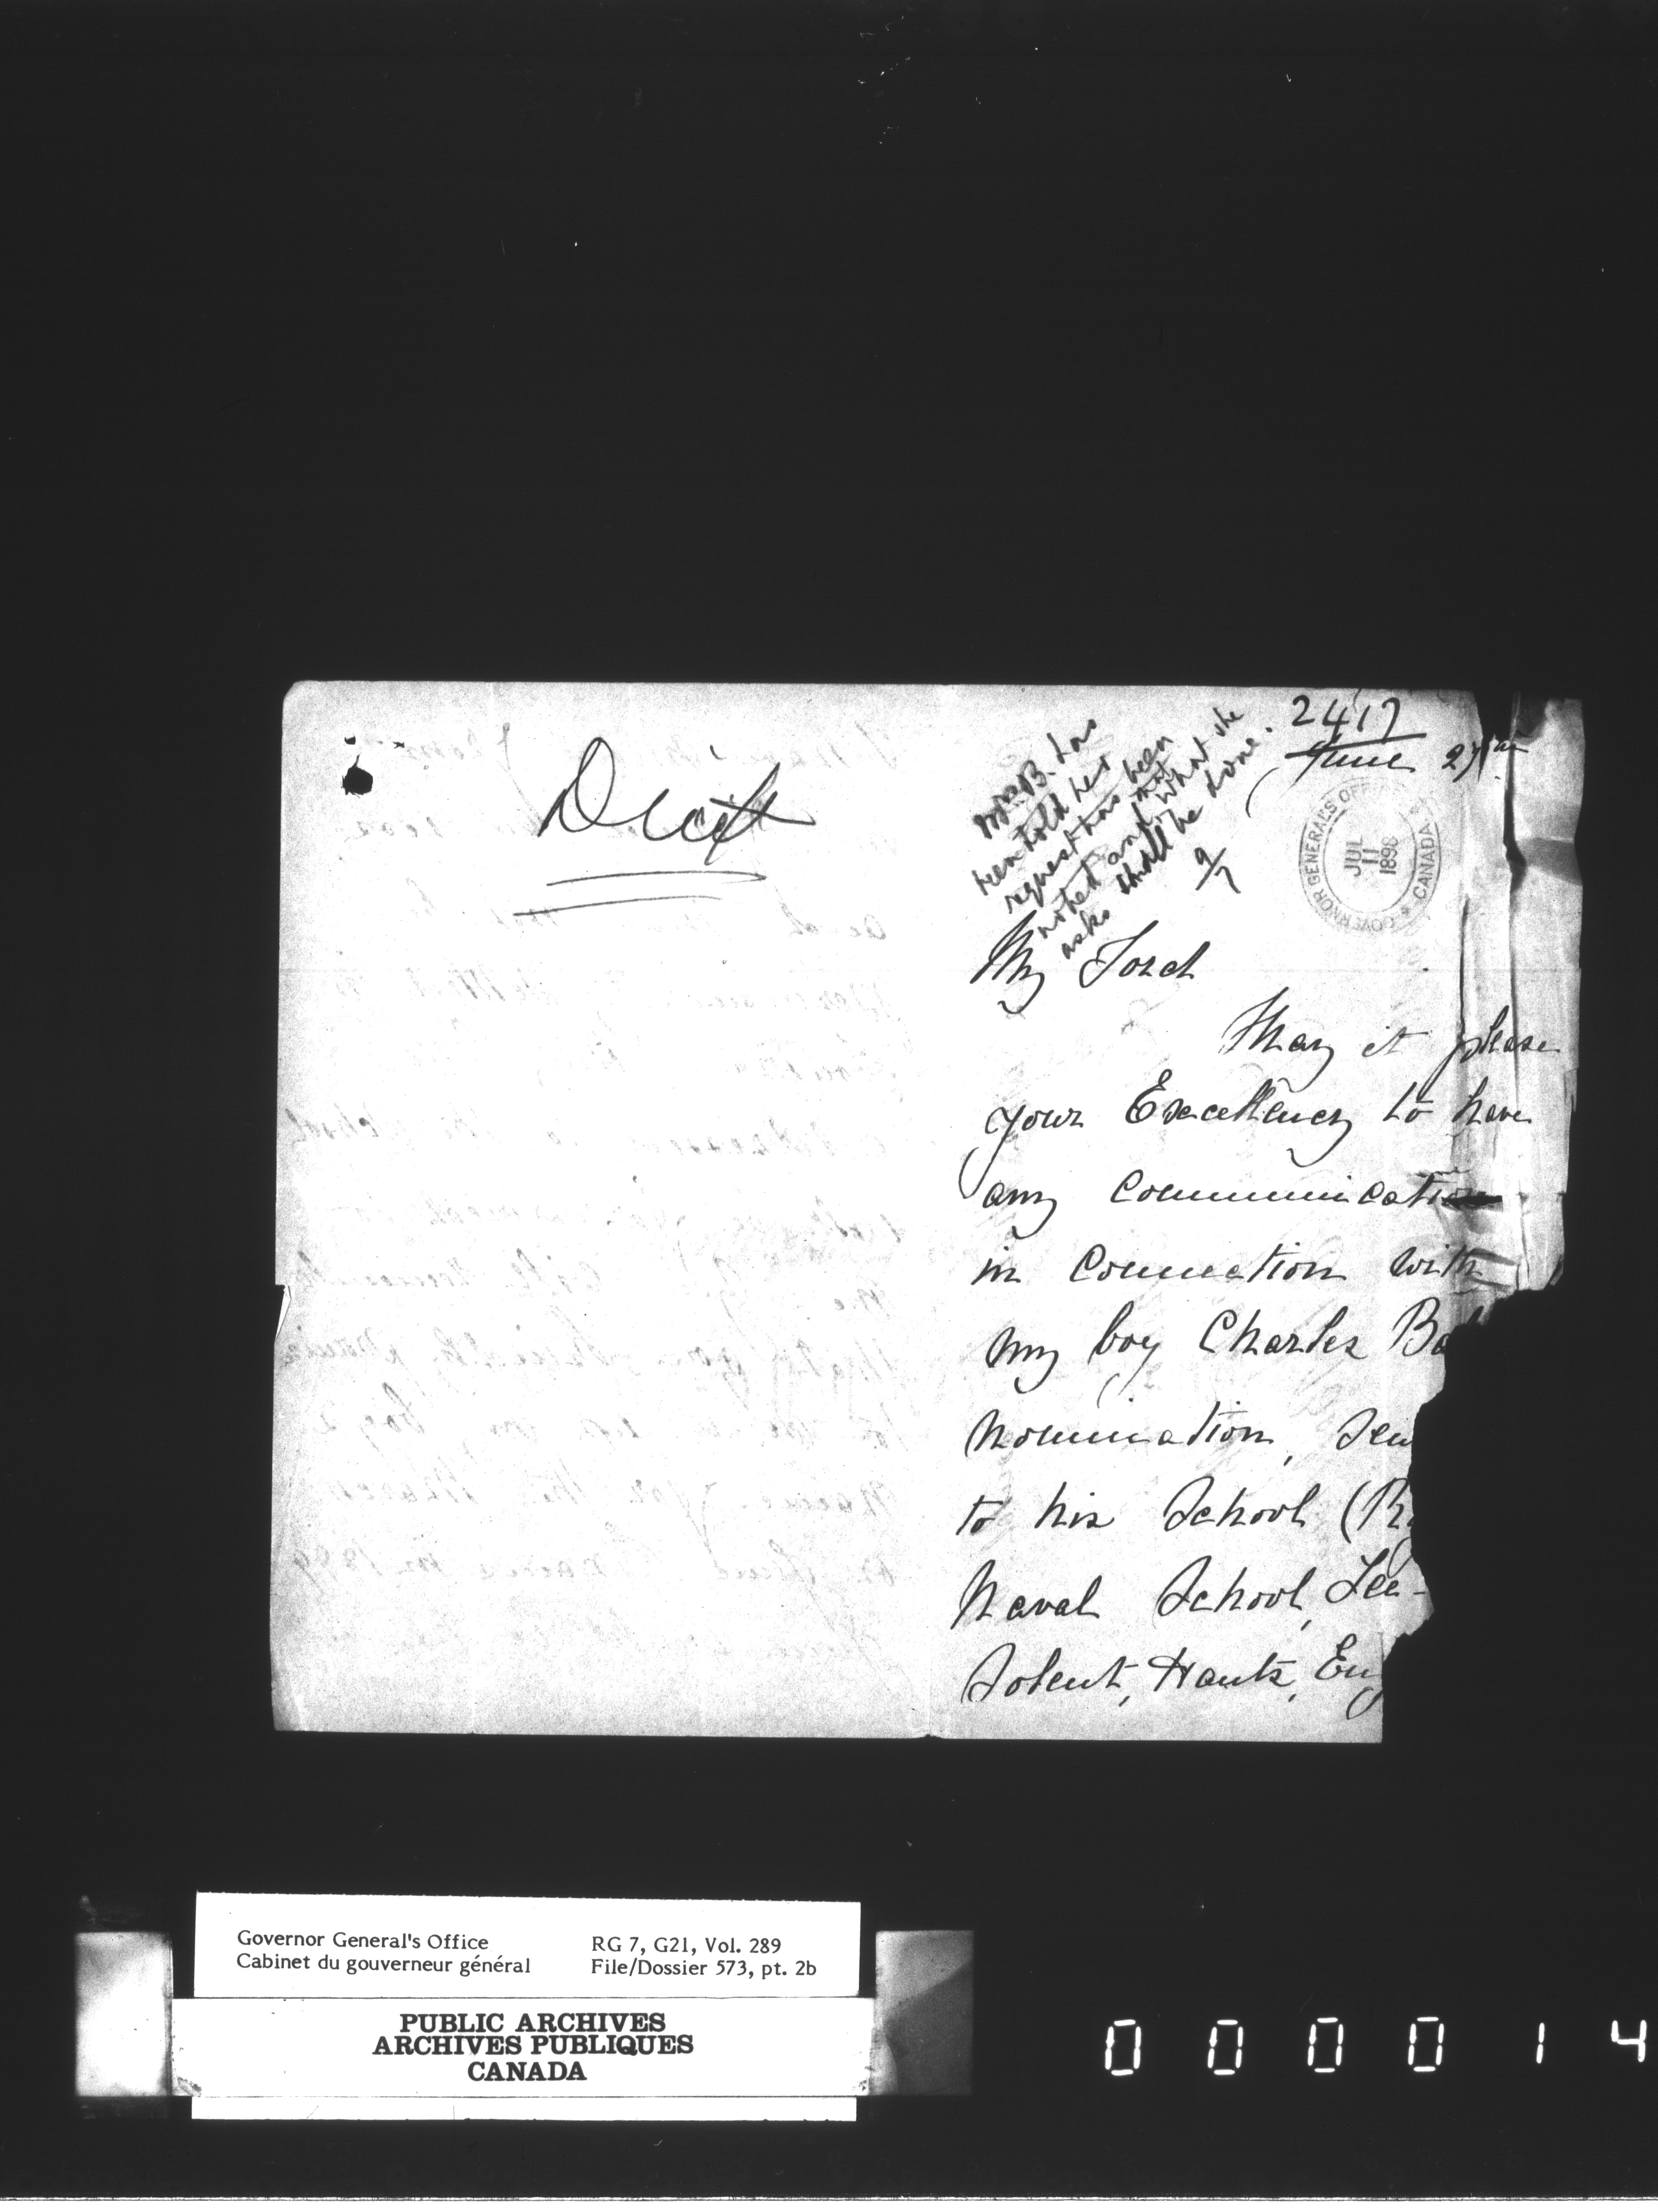 2417
June 27th
Mrs B. has
been told her
request has been
noted and that what she
asks shall be done.
9/7
GOVERNOR GENERAL'S OFFICE
JUL
11
1898
CANADA
My Lord
May it please
your Excellency to have
any communication
in connection with
my boy Charles
nomination,
to his School
Naval School, Lee-
Solent, Hants,
Governor General's Office
Cabinet du gouverneur général
RG 7, G21, Vol. 289
File/Dossier 573, pt. 2b
PUBLIC ARCHIVES
ARCHIVES PUBLIQUES
CANADA
0 0 0 0 1 4